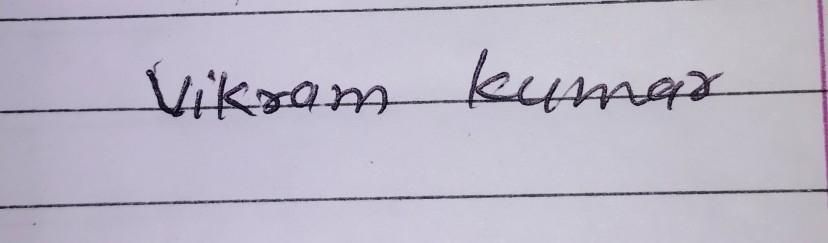 Vikram Kumar